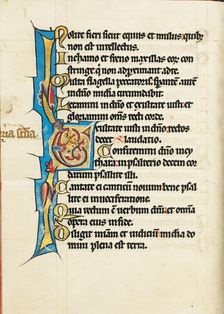 Nolite fieri sicut equus et mulus quib;
non est intellectus.
In chamo et freno maxillas eor con
stringe q' non adproximant ad te.
Multa flagella peccatoris sperant
in dnō misericordia circumdabit
Letamini in dnō et exultate iusti et
gloriamini omns recti corde.
Exultate iusti in dnō rectos
decet laudatio.
Confitemini dnō in cy
thara in psalterio decem cor
darum psallite illi
Cantate ei canticū nouum bene psal
lite in uociferatione.
Quia rectum ē uerbum dnī et omīa
opera eius in fide.
Diligit miam et iudiciū micdia do
mini plena est terra.